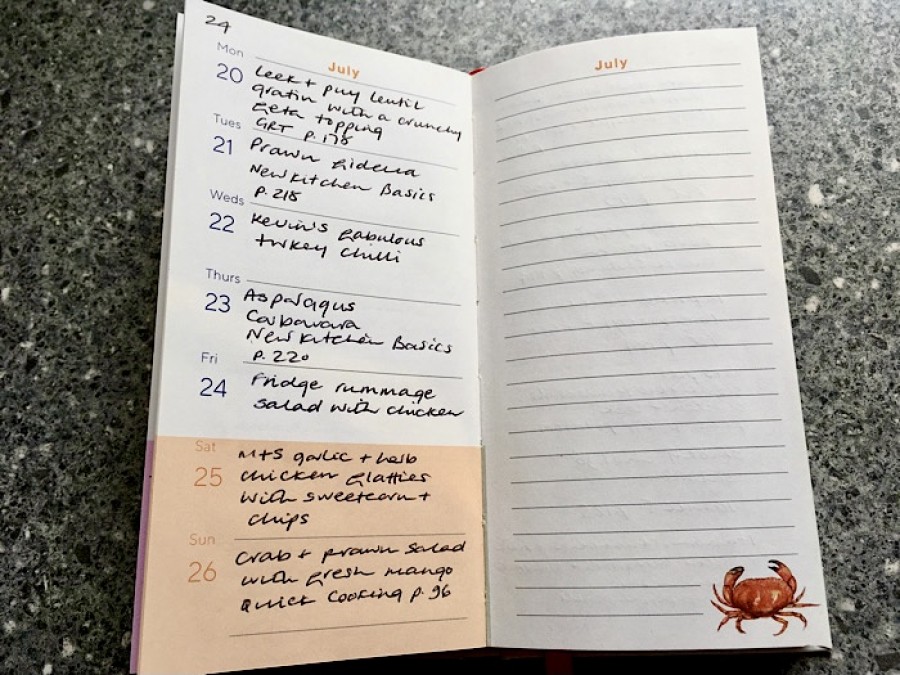 24
July
Mon
20
Leek + puy lentil
gratin with a crunchy
feta topping
GRT p.178
Tues
21
Prawn fideua
New Kitchen Basics
p.218
Weds
22
Kevin's fabulous
turkey chilli
Thurs
23
Asparagus
Carbonara
New Kitchen Basics
p.220
Fri
24
Fridge rummage
salad with chicken
Sat
25
M+S garlic + herb
chicken flatties
with sweetcorn +
chips
Sun
26
Crab + prawn salad
with fresh mango
Quick Cooking p.96
July